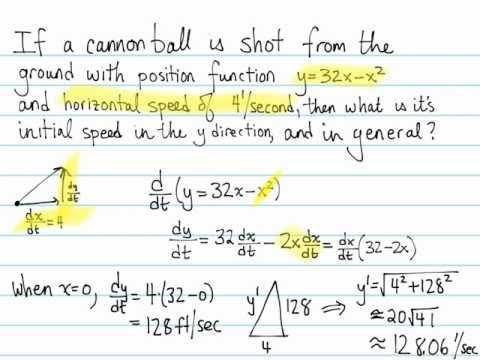 If a cannonball is shot from the
ground with position function y=32x-x²
and horizontal speed of 4'/second, then what is it's
initial speed in the y direction, and in general?
dy/dt
dx/dt = 4
d/dt (y = 32x-x²)
dy/dt = 32 dx/dt - 2x dx/dt = dx/dt (32-2x)
when x=0, dy/dt = 4·(32-0)
= 128 ft/sec
y' 128
4
⇒ y' = √(4²+128²)
≈ 20√41
≈ 128.06 '/sec